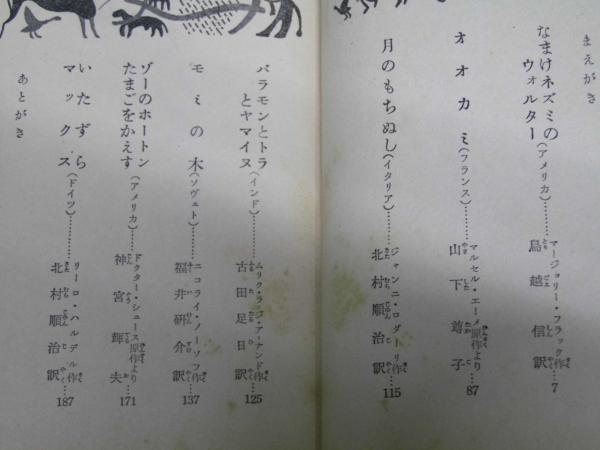 まえがき
なまけネズミの
ウォルター(アメリカ)………マージョリー・フラック作 鳥越信訳…7
オオカミ(フランス)………マルセル・エーメ原作より 山下蕗子…87
月のもちぬし(イタリア)………ジャンニ・ロダーリ作 北村順治訳…115
バラモンとトラ
とヤマイヌ(インド)………ムリク・ラジ・アーナンド作 古田足日訳…125
モミの木(ソヴェト)………ニコライ・ノーソフ作 福井研介訳…137
ゾーのホートン
たまごをかえす(アメリカ)………ドクター・シュース原作より 神宮輝夫…171
いたずら
マックス(ドイツ)………リーロ・ハルデル作 北村順治訳…187
あとがき